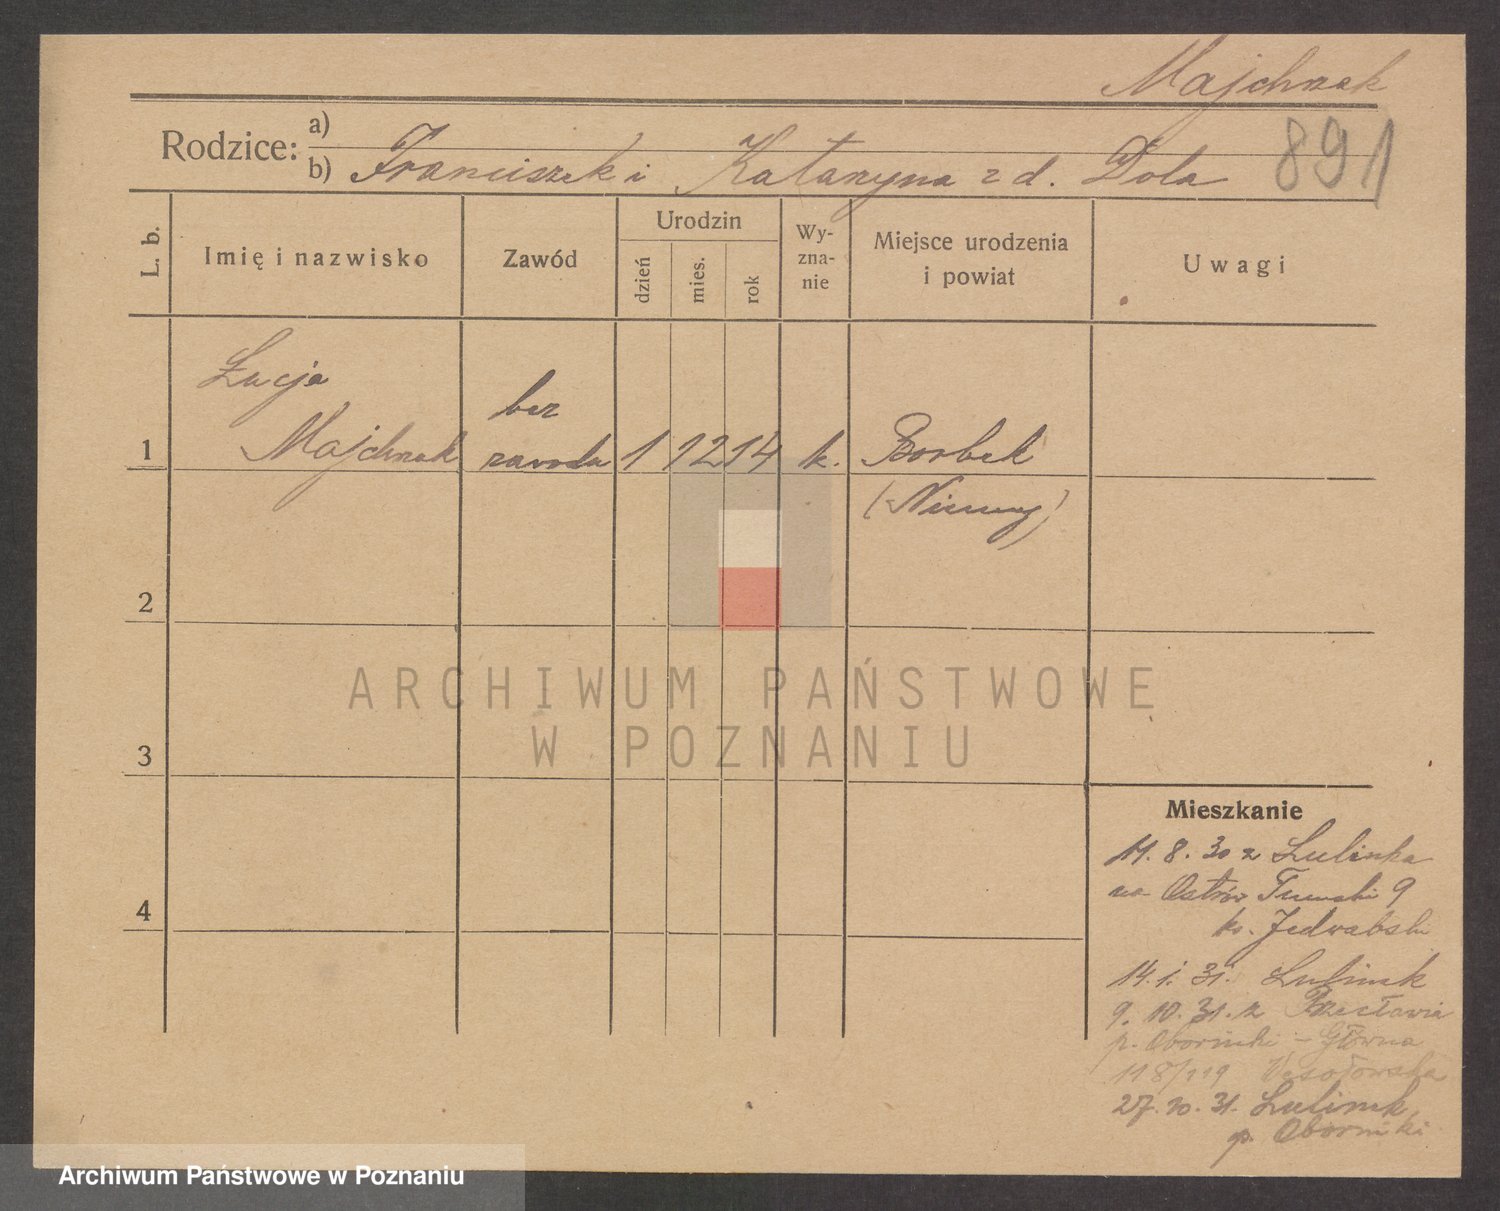 Majchrzak
891
Rodzice:
a)
b) Franciszek i Katarzyna z d. Dola
L. b.
Imię i nazwisko
Zawód
Urodzin
dzień
mies.
rok
Wy-
zna-
nie
Miejsce urodzenia
i powiat
Uwagi
Łucja
bez
1 Majchrzak zawodu 1 12 14 k. Borbek
(Niemcy)
2
3
4
ARCHIWUM PAŃSTWOWE
W POZNANIU
Mieszkanie
11. 8. 30 z Lulinka
na Ostrów Tumski 9
ks. Jedwabski
14. 1. 31. Lulinek
9. 10. 31. z Przecławia
p. Oborniki - Główna
118/119
27. 10. 31. Lulinek,
p. Oborniki
Archiwum Państwowe w Poznaniu